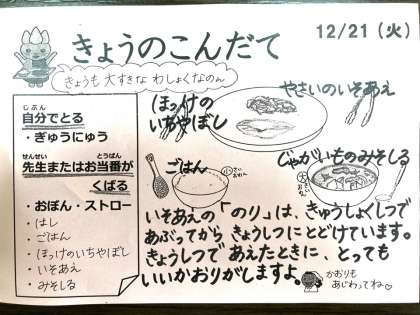 きょうのこんだて
12/21(火)
きょうも大すきなわしょくなのん
じぶん
自分でとる
・ぎゅうにゅう
せんせい とうばん
先生またはお当番が
くばる
・おぼん・ストロー
・はし
・ごはん
・ほっけのいちやぼし
・いそあえ
・みそしる
ほっけの
いちやぼし
やさいのいそあえ
ごはん
じゃがいものみそしる
いそあえの「のり」は、きゅうしょくしつで
あぶってから きょうしつにとどけています。
きょうしつであえたときに、とっても
いいかおりがしますよ。
かおりも
あじわってね